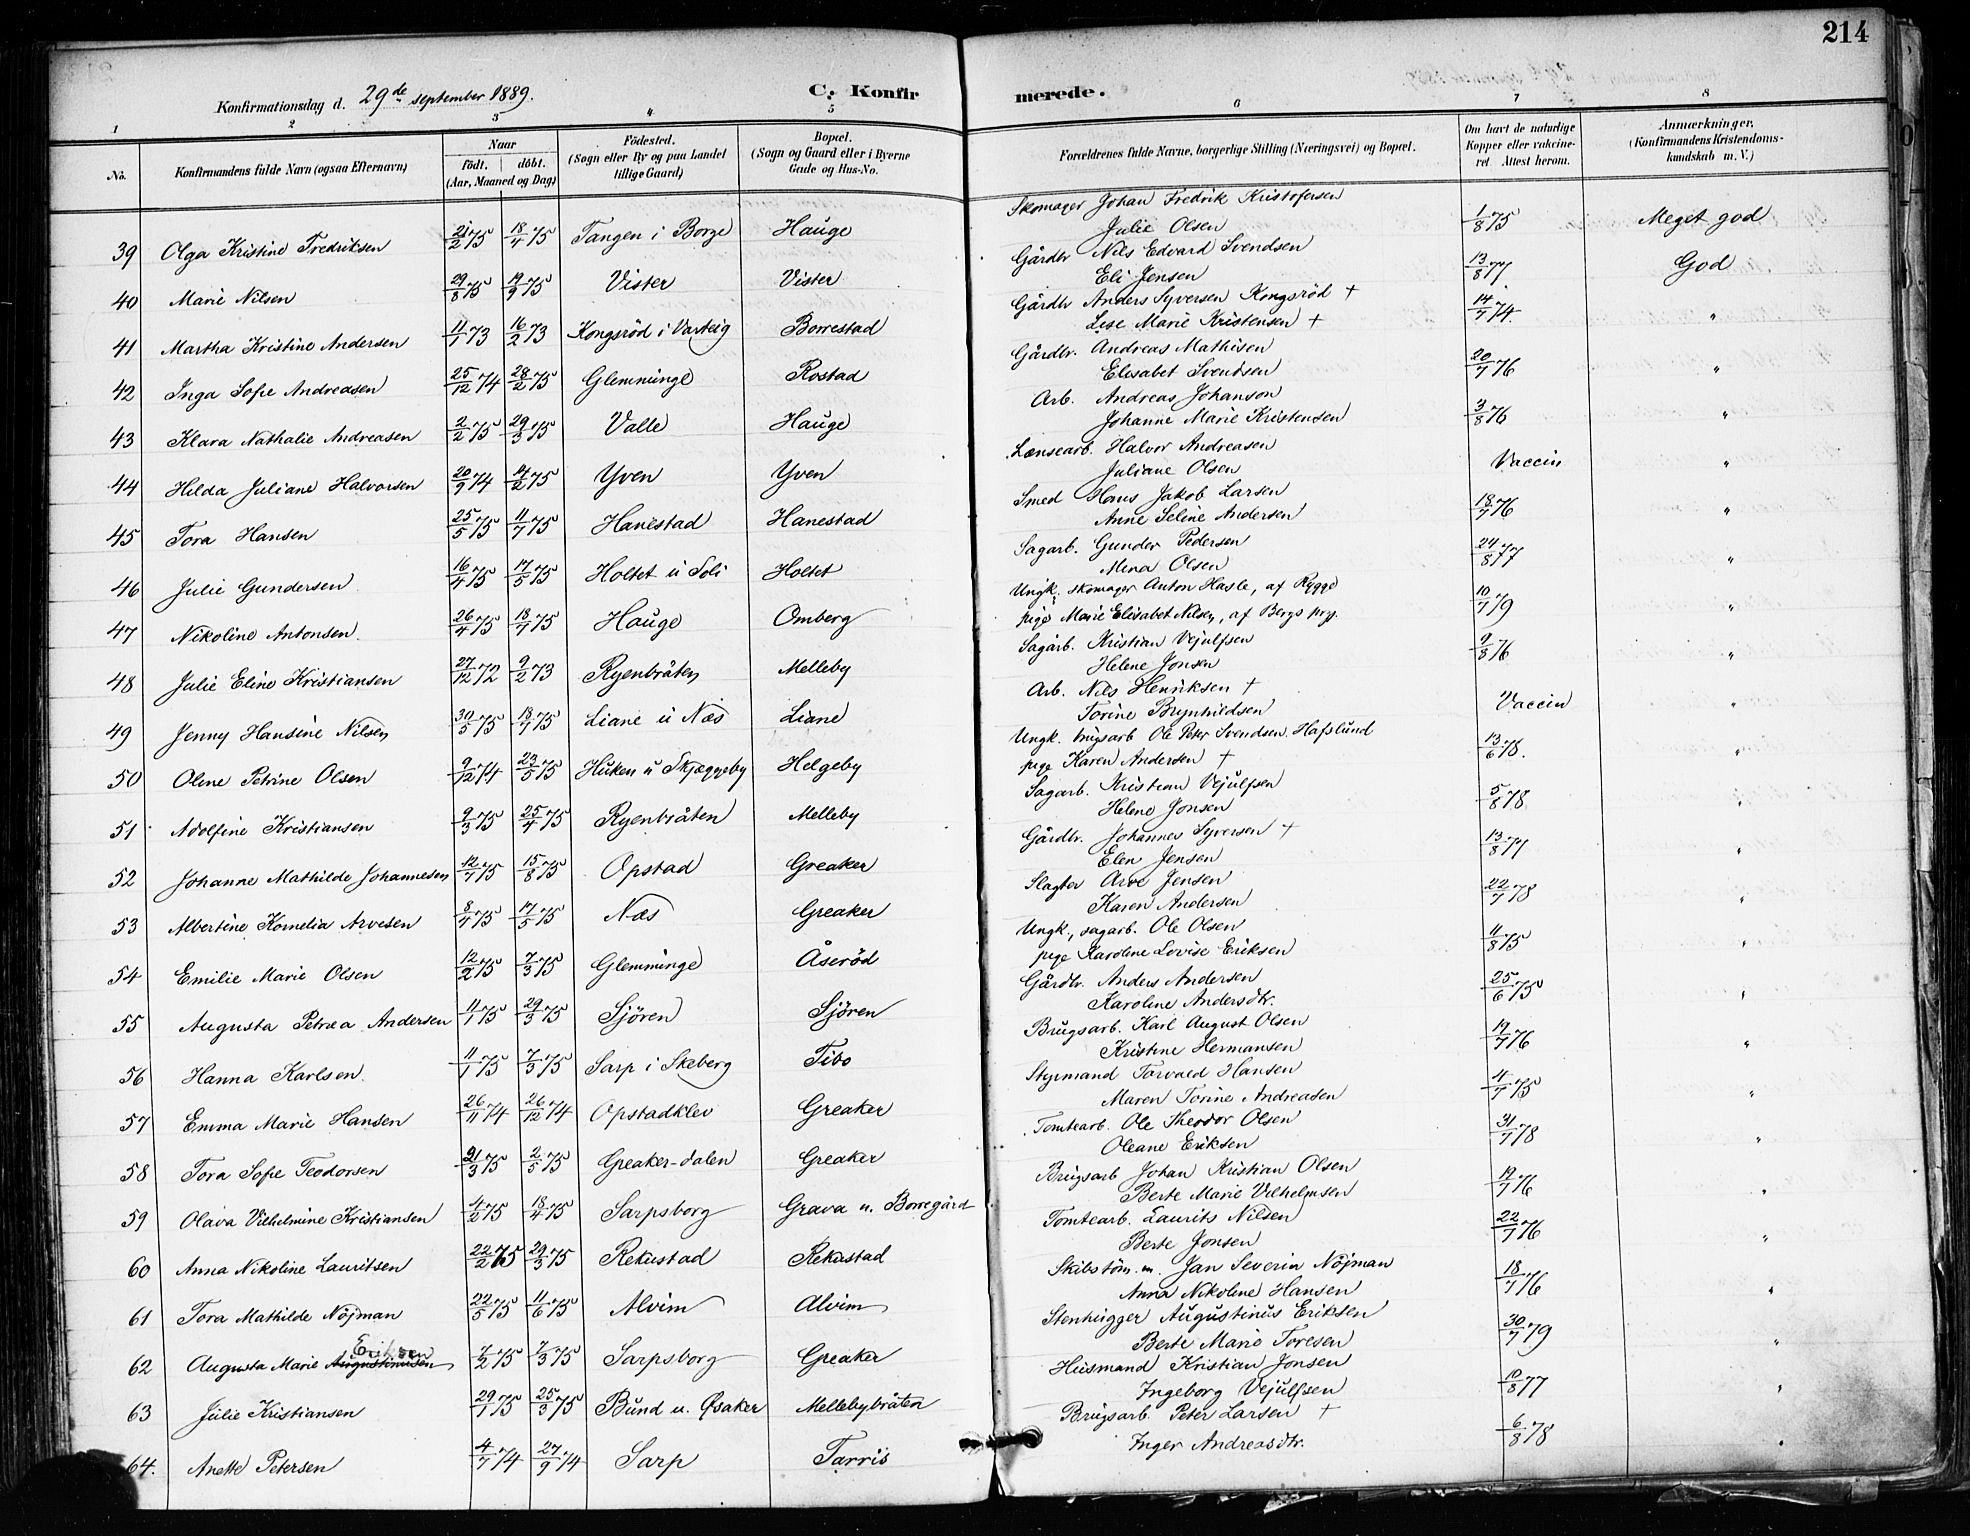 214
Konfirmationsdag d. 29de september 1889.
C. Konfirmerede.
1 2 3 4 5 6 7 8
No. Konfirmandens fulde Navn (ogsaa Efternavn) Naar födt. döbt. (Aar, Maaned og Dag) Födested. (Sogn eller By og paa Landet tillige Gaard) Bopæl. (Sogn og Gaard eller i Byerne Gade og Hus-No. Forældrenes fulde Navne, borgerlige Stilling (Næringsvei) og Bopæl. Om havt de naturlige Kopper eller vaccineret. Attest herom. Anmærkninger. (Konfirmandens Kristendomskundskab m. V.)
39 Olga Kristine Fredriksen 21/2 75 18/4 75 Tangen i Borge Hauge Skomager Johan Fredrik Kristofersen Julie Olsen 1/8 75 Meget god
40 Marie Nilsen 29/8 75 19/9 75 Vister Vister Gårdbr Nils Edvard Svendsen Eli Jensen 13/8 77 God
41 Martha Kristine Andersen 11/1 73 16/2 73 Kongsröd i Varteig Borrestad Gårdbr Anders Syversen Kongsröd † Lise Marie Kristensen † 14/7 74 "
42 Inga Sofie Andreasen 25/12 74 28/2 75 Glemminge Rostad Gårdbr. Andreas Mathisen Elisabet Svendsen 20/7 76 "
43 Klara Nathalie Andreasen 2/2 75 29/3 75 Valle Hauge Arb. Andreas Johanson Johanne Marie Kristensen 3/8 76 "
44 Hilda Juliane Halvorsen 20/9 74 14/2 75 Yven Yven Lænsearb. Halvor Andreasen Juliane Olsen Vaccin "
45 Tora Hansen 25/5 75 11/7 75 Hanestad Hanestad Smed Hans Jakob Larsen Anne Seline Andersen 18/7 76 "
46 Julie Gundersen 16/4 75 17/5 75 Holtet u Soli Holtet Sagarb. Gunder Pedersen Mina Olsen 24/8 77 "
47 Nikoline Antonsen 26/4 75 18/7 75 Hauge Omberg Ungk. skomager Anton Hasle, af Rygge pige Marie Elisabet Nilsen, af Bergs prg. 10/7 79 "
48 Julie Eline Kristiansen 27/12 72 9/2 73 Ryenbråten Melleby Sagarb. Kristian Vejulfsen Helene Jonsen 9/8 76 "
49 Jenny Hansine Nilsen 30/5 75 18/7 75 Liane u Næs Liane Arb. Nils Henriksen † Torine Brynhildsen Vaccin "
50 Oline Petrine Olsen 9/12 74 23/5 75 Huken u Skjæggeby Helgeby Ungk. brugsarb Ole Peter Svendsen. Hafslund pige Karen Andersen † 13/6 78. "
51 Adolfine Kristiansen 9/3 75 25/4 75 Ryenbråten Melleby Sagarb. Kristian Vejulfsen Helene Jonsen 5/8 78 "
52 Johanne Mathilde Johannesen 12/7 75 15/8 75 Opstad Greaker Gårdbr. Johannes Syversen † Elen Jensen 13/8 77 "
53 Albertine Kornelia Arvesen 8/4 75 17/5 75 Næs Greaker Slagter Arve Jensen Karen Andersen 22/7 78 "
54 Emilie Marie Olsen 12/2 75 7/3 75 Glemminge Åseröd Ungk., sagarb. Ole Olsen pige Karoline Lovise Eriksen 11/8 75 "
55 Augusta Petræa Andersen 11/1 75 29/3 75 Sjören Sjören Gårdbr. Anders Andersen Karoline Andersdtr. 25/6 75 "
56 Hanna Karlsen 11/1 75 7/3 75 Sarp i Skeberg Tibo Brugsarb. Karl August Olsen Kristine Hermansen 19/7 76 "
57 Emma Marie Hansen 26/11 74 26/12 74 Opstadklev Greaker Styrmand Torvald Hansen Maren Torine Andreasen 4/7 75 "
58 Tora Sofie Teodorsen 21/3 75 2/5 75 Greaker-dalen Greaker Tomtearb. Ole Theodor Olsen Oleane Eriksen 31/7 78 "
59 Olava Vilhelmine Kristiansen 4/2 75 18/4 75 Sarpsborg Grava u. Borregård Brugsarb Johan Kristian Olsen Berte Marie Vilhelmsen 19/7 76 "
60 Anna Nikoline Lauritsen 22/2 75 29/3 75 Rekustad Rekustad Tomtearb. Laurits Nilsen Berte Jonsen 22/7 76 "
61 Tora Mathilde Nöjman 22/5 75 11/6 75 Alvim Alvim Skibstöm.m. Jan Severin Nöjman Anna Nikoline Hansen 18/7 76 "
62 Augusta Marie Augustinusen Eriksen 7/2 75 7/3 75 Sarpsborg Greaker Stenhugger Augustinus Eriksen Berte Marie Toresen 30/7 79 "
63 Julie Kristiansen 29/1 75 25/3 75 Bund u. Øsaker Mellebybråten Husmand Kristian Jonsen Ingeborg Vejulfsen 10/8 77 "
64. Anette Petersen 4/7 74 27/9 74 Sarp Tarris Brugsarb. Peter Larsen † Inger Andreasdtr. 6/8 78 "